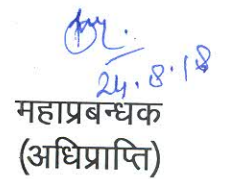 24.8.18
महाप्रबन्धक
(अधिप्राप्ति)